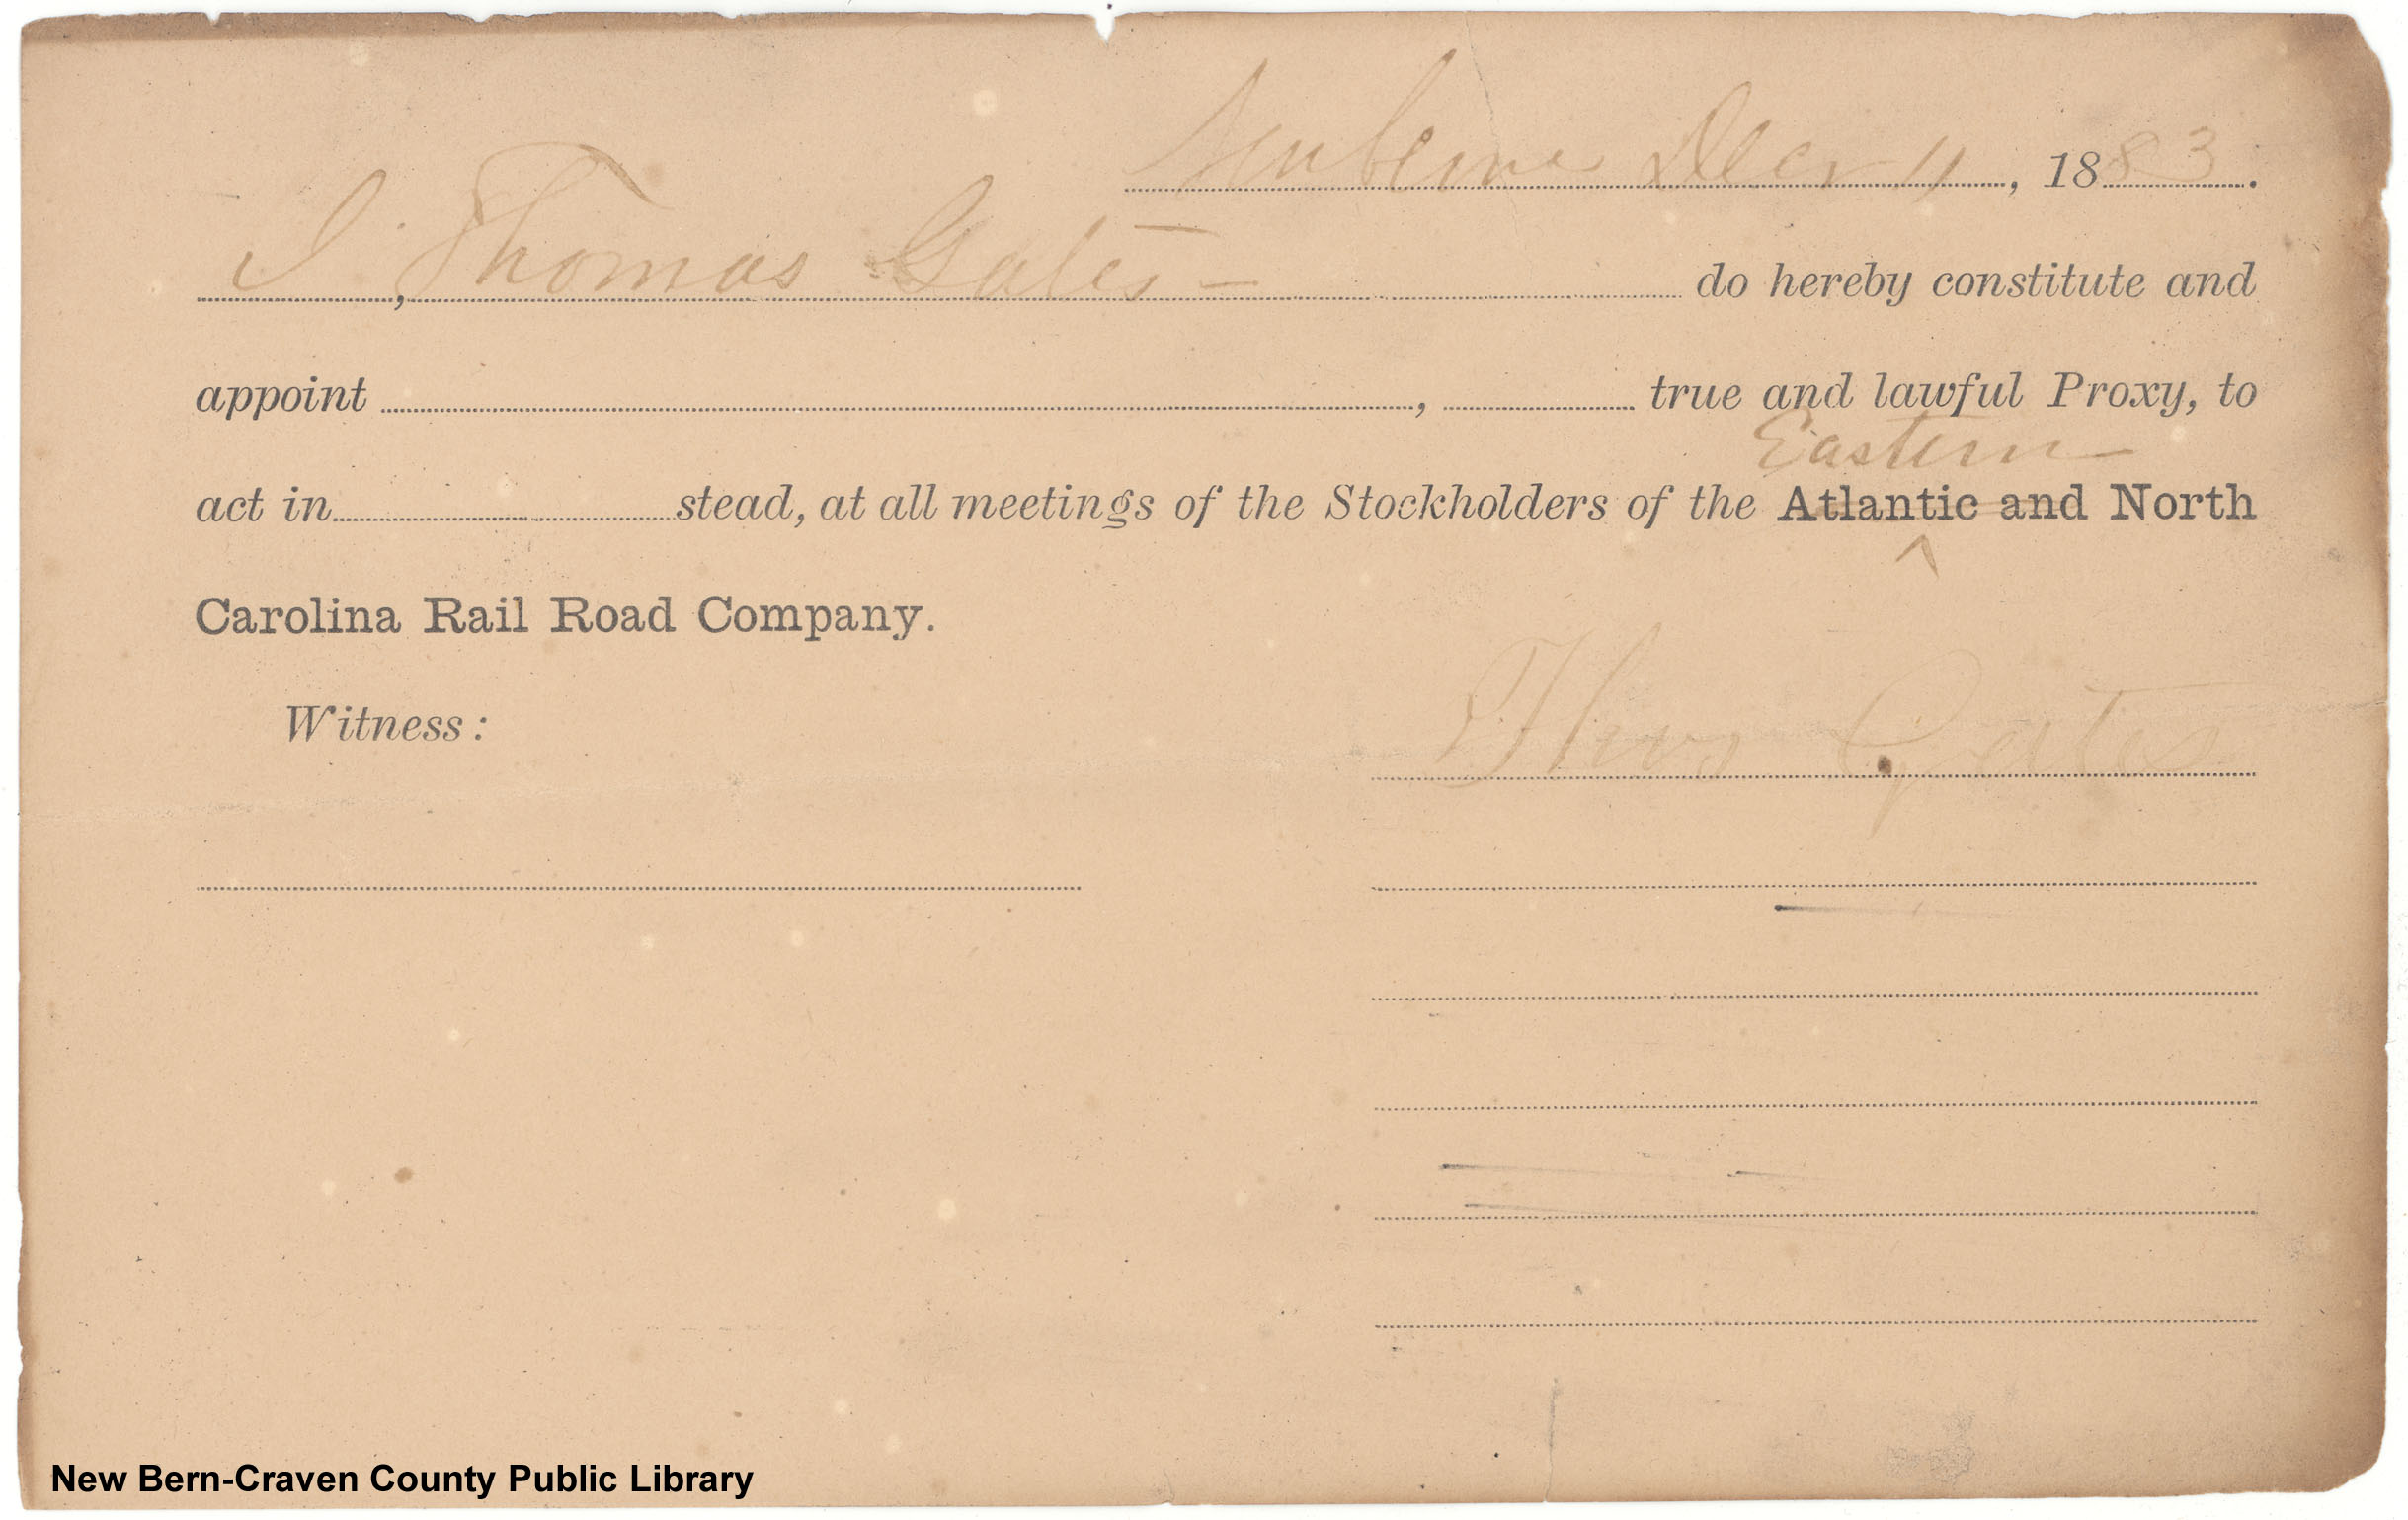 Newberne Decr 11, 1883.
I, Thomas Gates — do hereby constitute and
appoint , true and lawful Proxy, to
Eastern
act in stead, at all meetings of the Stockholders of the Atlantic and North
^
Carolina Rail Road Company.
Witness:
Thos Gates
New Bern-Craven County Public Library